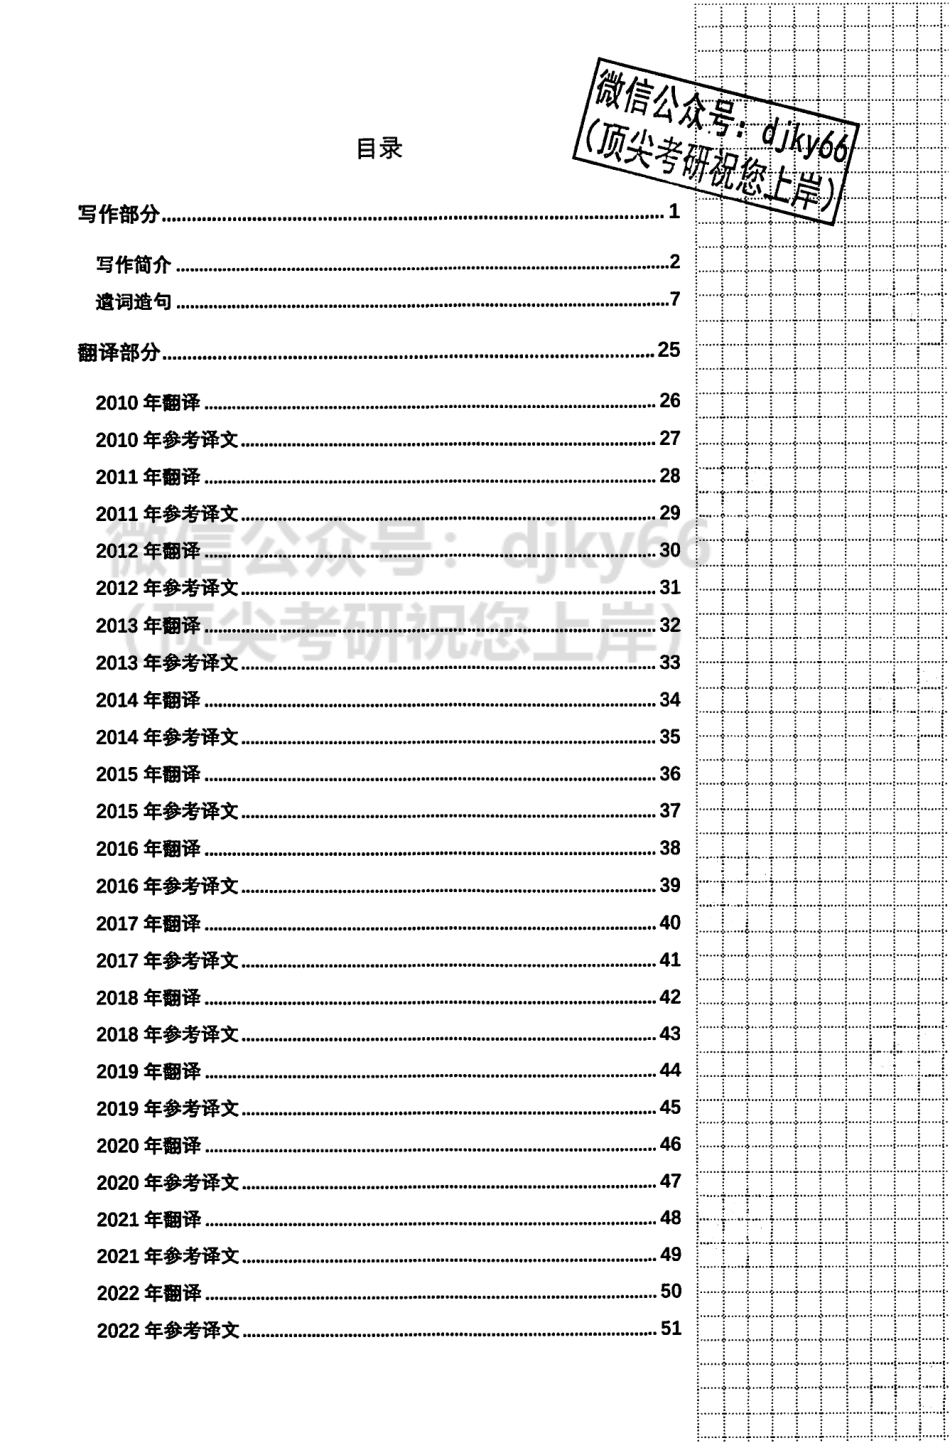 微信公众号：djky66
（顶尖考研祝您上岸）
目录
写作部分 1
写作简介 2
遣词造句 7
翻译部分 25
2010 年翻译 26
2010 年参考译文 27
2011 年翻译 28
2011 年参考译文 29
微信公众号：djky66
2012 年翻译 30
2012 年参考译文 31
（顶尖考研祝您上岸）
2013 年翻译 32
2013 年参考译文 33
2014 年翻译 34
2014 年参考译文 35
2015 年翻译 36
2015 年参考译文 37
2016 年翻译 38
2016 年参考译文 39
2017 年翻译 40
2017 年参考译文 41
2018 年翻译 42
2018 年参考译文 43
2019 年翻译 44
2019 年参考译文 45
2020 年翻译 46
2020 年参考译文 47
2021 年翻译 48
2021 年参考译文 49
2022 年翻译 50
2022 年参考译文 51